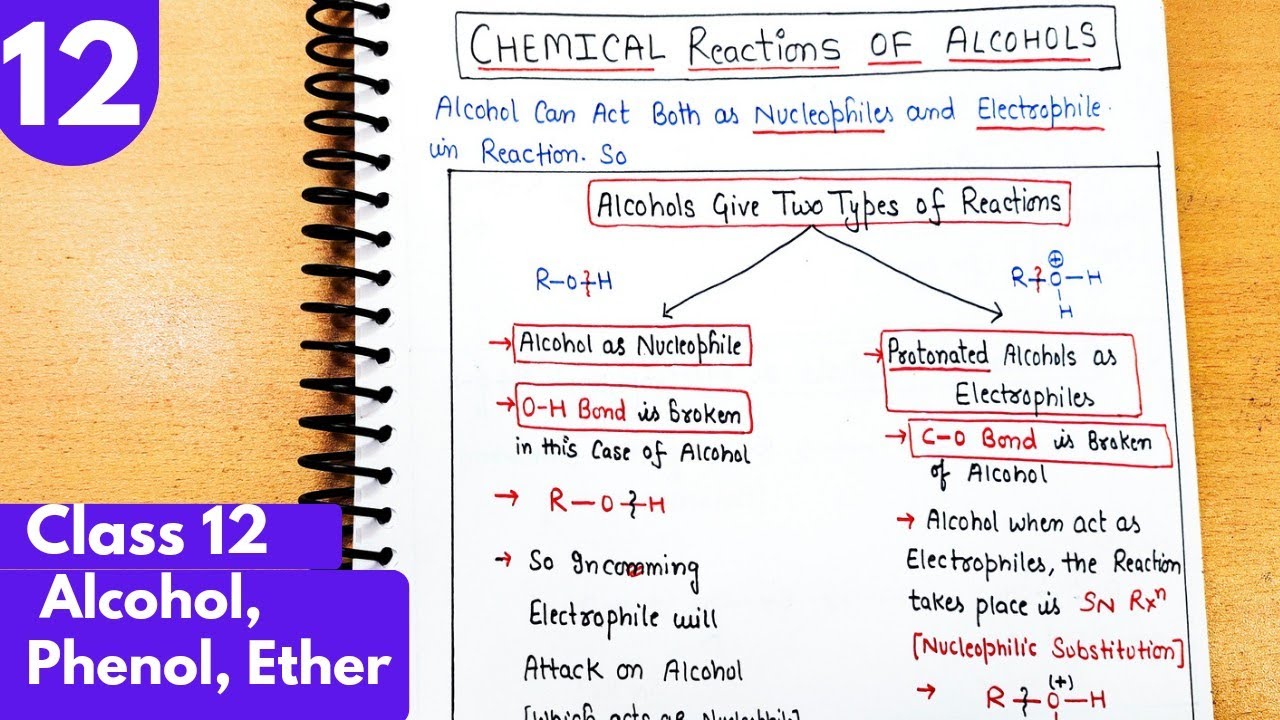 12
CHEMICAL Reactions OF ALCOHOLS
Alcohol Can Act Both as Nucleophiles and Electrophile.
in Reaction. So
Alcohols Give Two Types of Reactions
R-O-H
→ Alcohol as Nucleophile
→ O-H Bond is Broken
in this Case of Alcohol
→ R-O-H
→ So Incomming
Electrophile will
Attack on Alcohol
[Which acts as Nucleophile]
⊕
R-O-H
H
→ Protonated Alcohols as
Electrophiles
→ C-O Bond is Broken
of Alcohol
→ Alcohol when act as
Electrophiles, the Reaction
takes place is SN Rxⁿ
[Nucleophilic Substitution]
(+)
→ R-O-H
Class 12
Alcohol,
Phenol, Ether